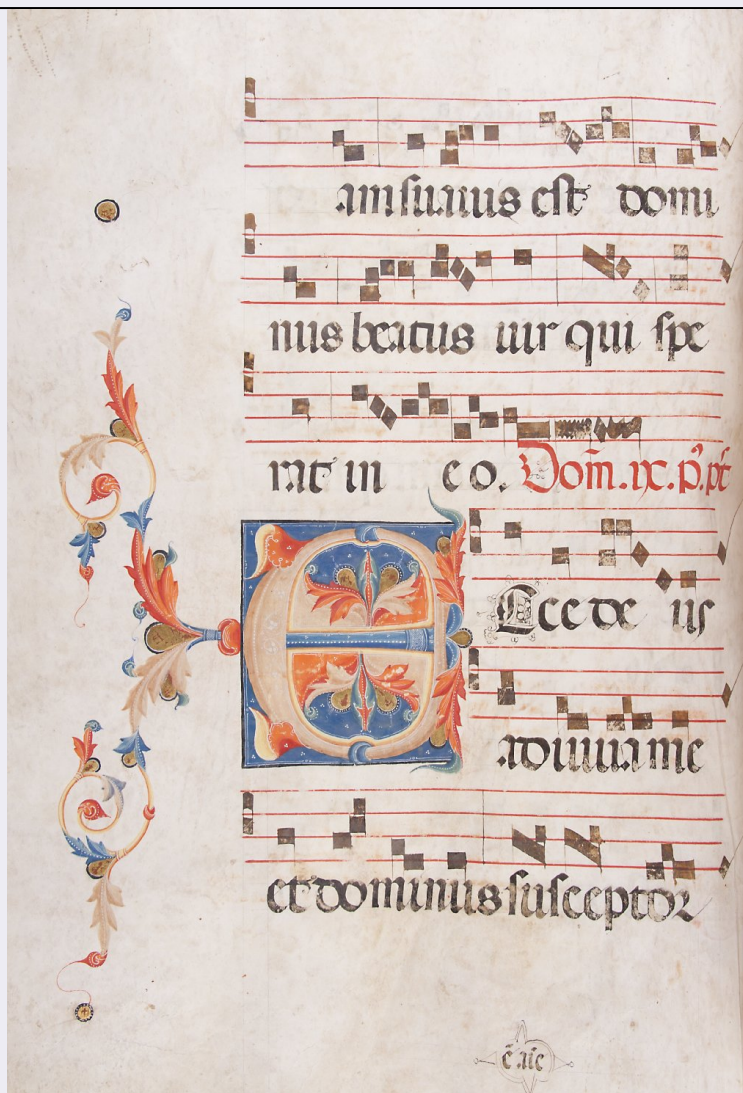 am suauus est domi
nus beatus uir qui spe
rat in eo. Dom̃. ix. p̃. pt̃
Ecce de us
adiuua me
et dominus susceptor
ẽ aĩe